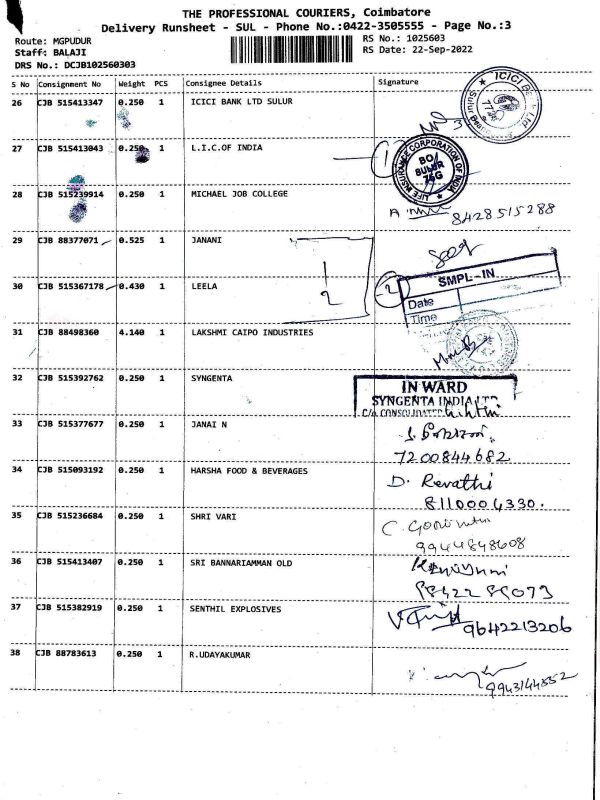 THE PROFESSIONAL COURIERS, Coimbatore
Delivery Runsheet - SUL - Phone No.:0422-3505555 - Page No.:3
Route: MGPUDUR
Staff: BALAJI
DRS No.: DCJB102560303
RS No.: 1025603
RS Date: 22-Sep-2022
S No Consignment No Weight PCS Consignee Details Signature
26 CJB 515413347 0.250 1 ICICI BANK LTD SULUR
ICICI
27 CJB 515413043 0.250 1 L.I.C.OF INDIA 1
LIFE INSURANCE CORPORATION OF INDIA
BO
SULUR
28 CJB 515239914 0.250 1 MICHAEL JOB COLLEGE
8428515288
29 CJB 88377071 0.525 1 JANANI
1
2
30 CJB 515367178 0.430 1 LEELA 2
SMPL-IN
Date
Time
31 CJB 88498360 4.140 1 LAKSHMI CAIPO INDUSTRIES
32 CJB 515392762 0.250 1 SYNGENTA
IN WARD
SYNGENTA INDIA LTD
C/o CONSOLIDATED
33 CJB 515377677 0.250 1 JANAI N
7200844682
34 CJB 515093192 0.250 1 HARSHA FOOD & BEVERAGES D. Revathi
8110004330.
35 CJB 515236684 0.250 1 SHRI VARI
9944848608
36 CJB 515413407 0.250 1 SRI BANNARIAMMAN OLD
37 CJB 515382919 0.250 1 SENTHIL EXPLOSIVES
9642213206
38 CJB 88783613 0.250 1 R.UDAYAKUMAR
9943144552